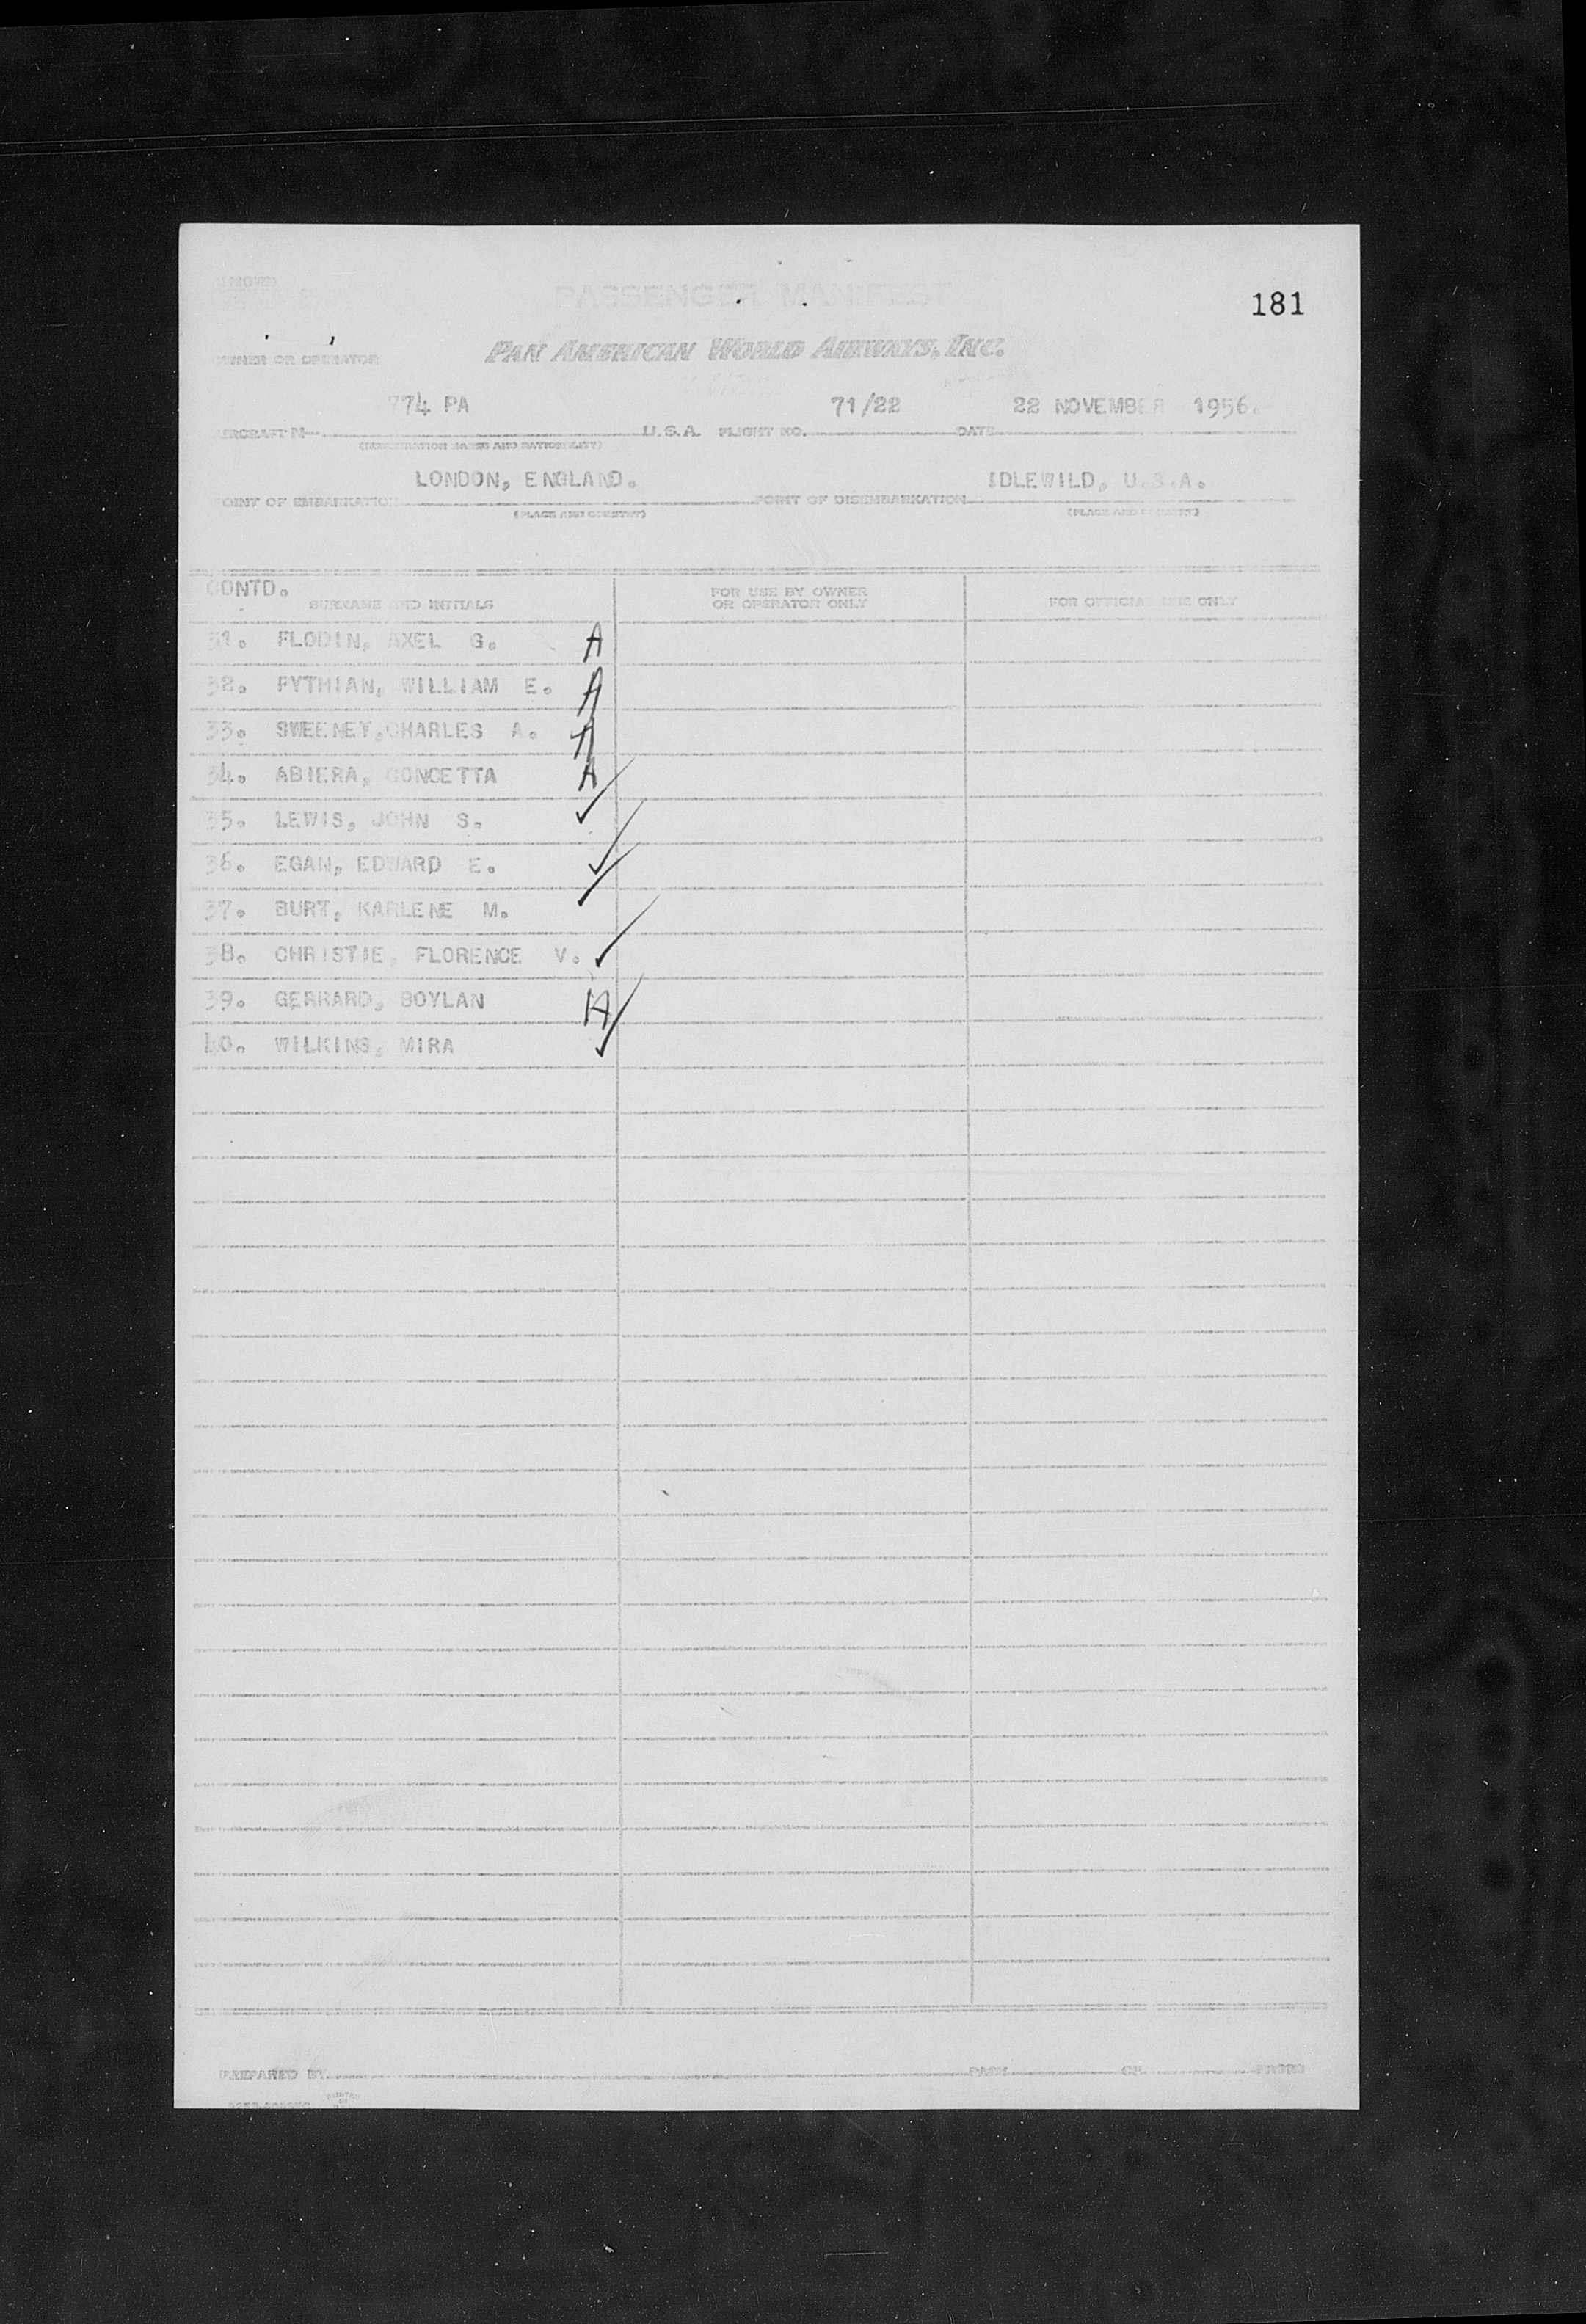 PASSENGER MANIFEST
181
OWNER OR OPERATOR PAN AMERICAN WORLD AIRWAYS, INC.
774 PA 71/22 22 NOVEMBER 1956.
AIRCRAFT N U.S.A. FLIGHT NO. DATE
(REGISTRATION MARKS AND NATIONALITY)
LONDON, ENGLAND. IDLEWILD, U.S.A.
POINT OF EMBARKATION POINT OF DISEMBARKATION
(PLACE AND COUNTRY) (PLACE AND COUNTRY)
CONTD.
SURNAME AND INITIALS FOR USE BY OWNER OR OPERATOR ONLY FOR OFFICIAL USE ONLY
31. FLODIN, AXEL G. A
32. PYTHIAN, WILLIAM E. A
33. SWEENEY,CHARLES A. A
34. ABIERA, CONCETTA A
35. LEWIS, JOHN S. ✓
36. EGAN, EDWARD E. ✓
37. BURT, KARLENE M. ✓
38. CHRISTIE, FLORENCE V. ✓
39. GERRARD, BOYLAN A
40. WILKINS, MIRA ✓
PREPARED BY PAGE OF PAGES